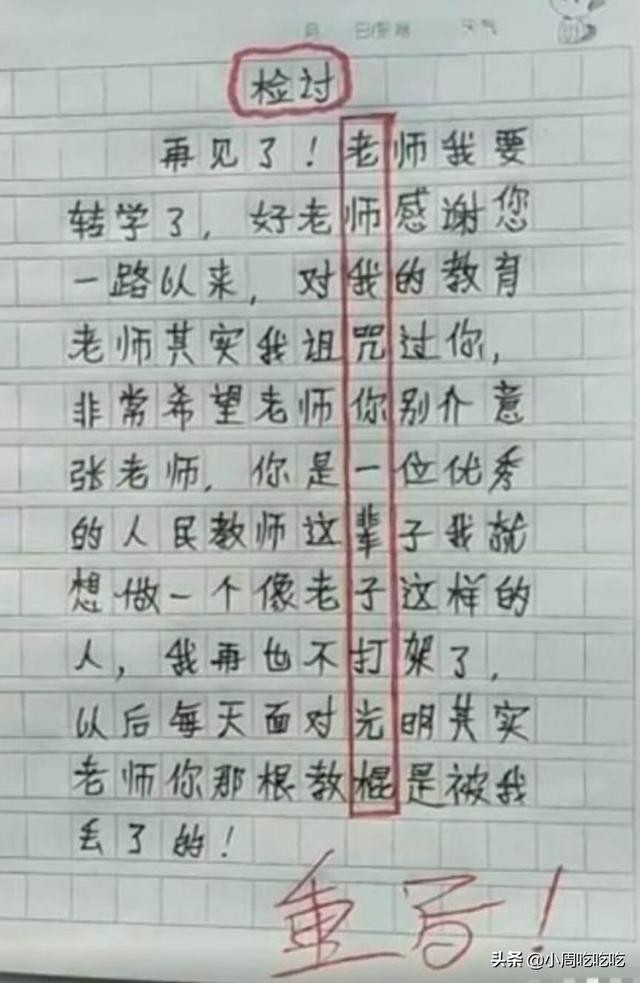 月 日 星期 天气
检讨
再见了！老师我要
转学了，好老师感谢您
一路以来，对我的教育
老师其实我诅咒过你，
非常希望老师你别介意
张老师，你是一位优秀
的人民教师这辈子我就
想做一个像老子这样的
人，我再也不打架了，
以后每天面对光明其实
老师你那根教棍是被我
丢了的！
重写！
头条 @小周吃吃吃